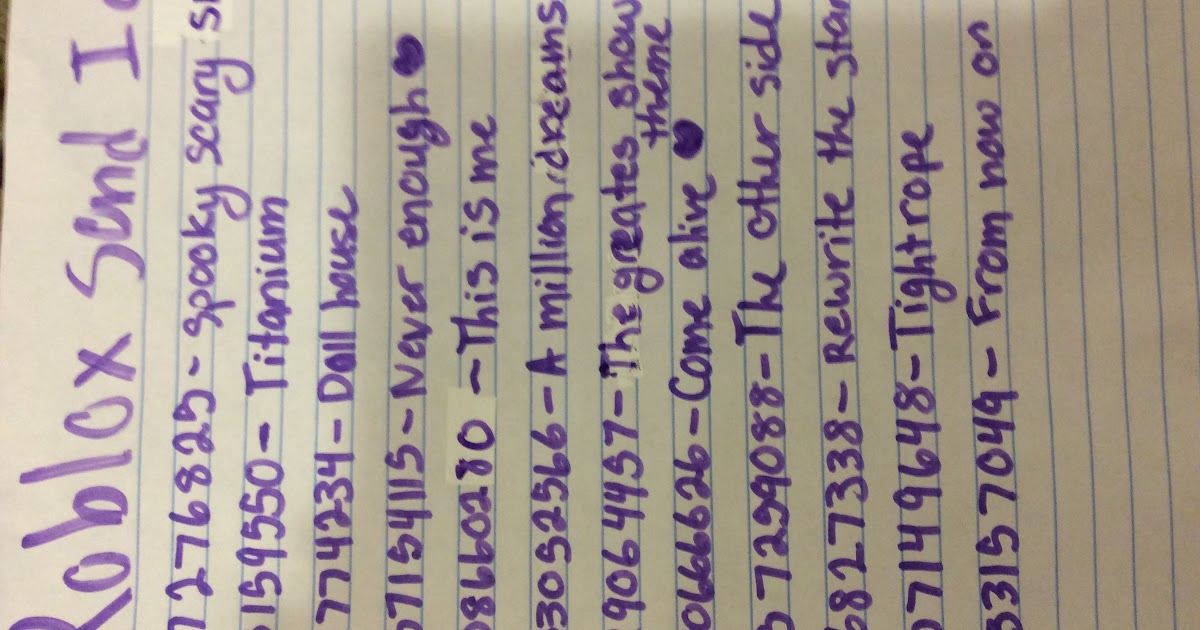 Roblox Send I
7276825 - Spooky scary s
159550 - Titanium
7774234 - Doll house
07154115 - Never enough ♥
08660280 - This is me
33052566 - A million dreams
9064457 - The greates show
theme
0666626 - Come alive ♥
67259088 - The other side
6827338 - Rewrite the star
07149648 - Tightrope
33157049 - From now on